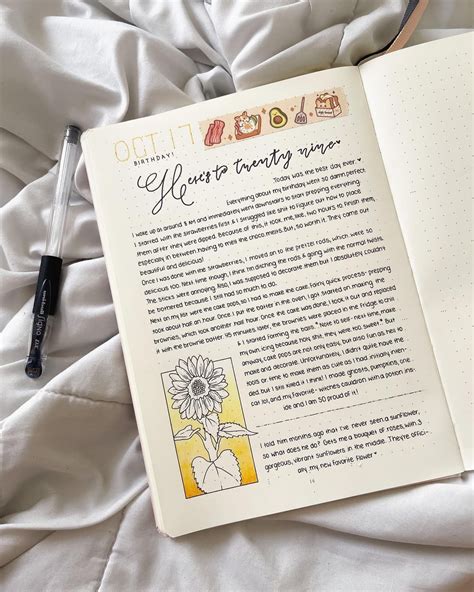 OCT. 17
BIRTHDAY!
Here's to twenty nine
Today was the best day ever.
Everything about my birthday went so damn perfect
I woke up at around 8 AM and immediately went downstairs to start prepping everything.
I started with the strawberries first & I struggled like shit to figure out how to place
them after they were dipped. Because of this, it took me, like, two hours to finish them,
especially in between having to melt the choco melts. But, so worth it. They came out
beautiful and delicious!
Once I was done with the strawberries, I moved on to the pretzel rods, which were so
delicious too. Next time though, I think I'm ditching the rods & going with the normal twists.
The sticks were annoying. Also, I was supposed to decorate them but I absolutely couldn't
be bothered because I still had so much to do.
Next on my list were the cake pops, so I had to make the cake. Fairly quick process- prepping
took about half an hour. Once I put the batter in the oven, I got started on making the
brownies, which took another half hour. Once the cake was done, I took it out and replaced
it with the brownie batter. 45 minutes later, the brownies were placed in the fridge to chill &
I started forming the balls. *Note to self- next time, make
my own icing because holy shit, they were too sweet.* But
anyway, cake pops are not only easy, but also fun as hell to
make and decorate. Unfortunately, I didn't quite have the
tools or time to make them as cute as I had initially inten-
ded but I still killed it I think! I made ghosts, pumpkins, one
cat lol, and my favorite- witches cauldron with a potion ins-
ide and I am SO proud of it!
I told him months ago that I've never seen a sunflower,
so what does he do? Gets me a bouquet of roses, with 3
gorgeous, vibrant sunflowers in the middle. They're offici-
ally my new favorite flower